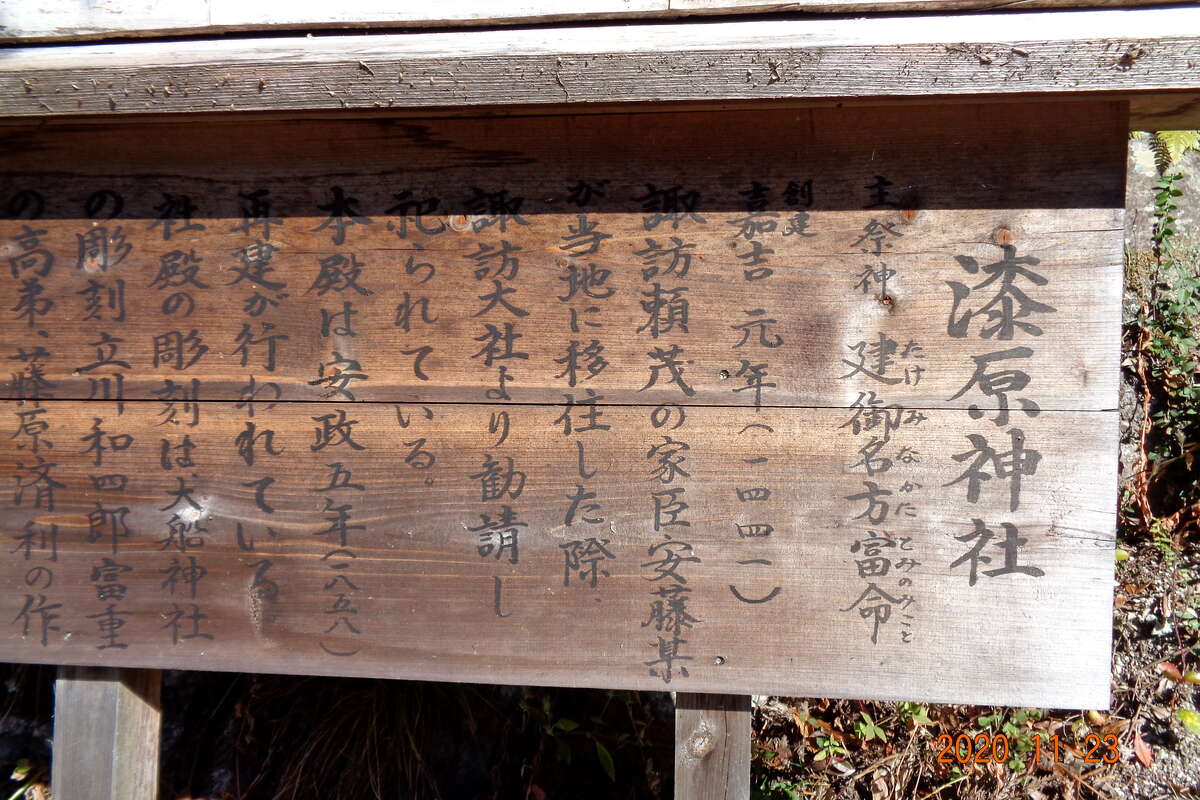 漆原神社
主祭神 建御名方富命
たけみなかたとみのみこと
創建
嘉吉元年(一四四一)
諏訪頼茂の家臣安藤某
が当地に移住した際
諏訪大社より勧請し
祀られている。
本殿は安政五年(一八五八)
再建が行われている。
社殿の彫刻は大船神社
の彫刻立川和四郎富重
の高弟、藤原済利の作
2020 11 23